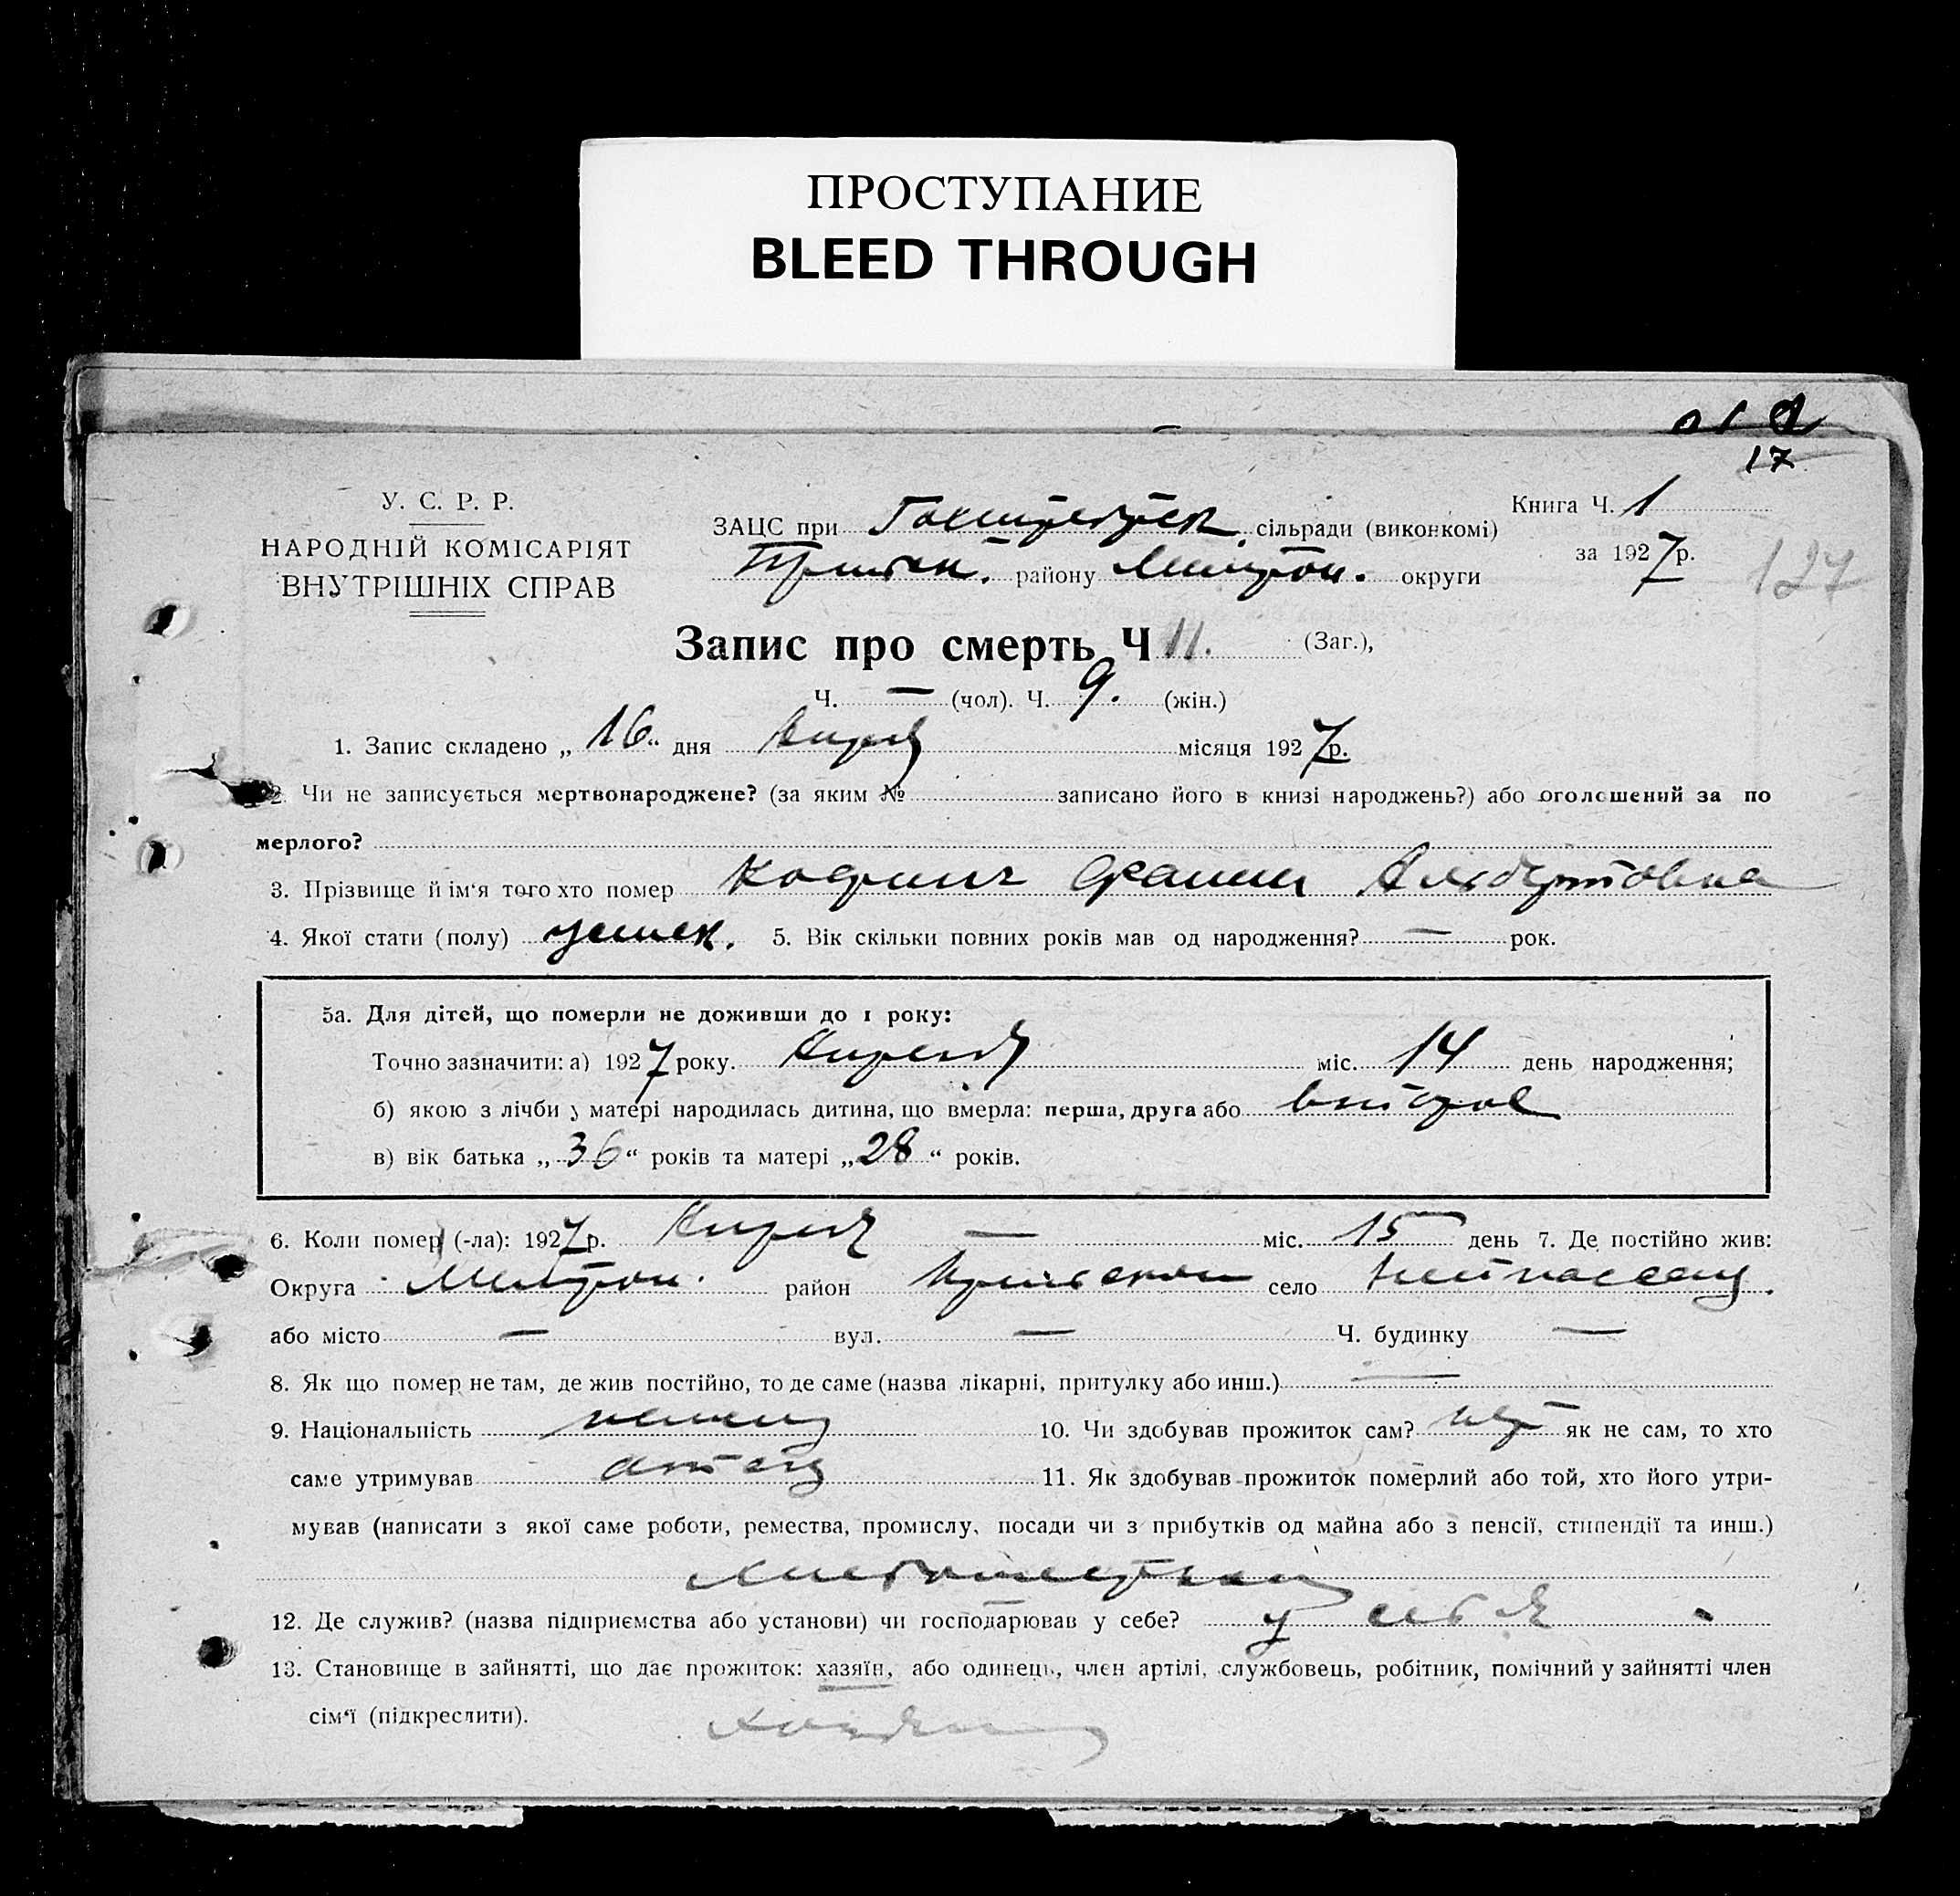 ПРОСТУПАНИЕ
BLEED THROUGH
17
У. С. Р. Р.
НАРОДНІЙ КОМІСАРІЯТ
ВНУТРІШНІХ СПРАВ
ЗАЦС при сільради (виконкомі)
Пришибск. району Мелитоп. округи
Книга Ч. 1
за 1927 р.
127
Запис про смерть Ч 11. (Заг.),
Ч. — (чол). Ч. 9. (жін.)
1. Запис складено „ 16 " дня Апреля місяця 1927 р.
2. Чи не записується мертвонароджене? (за яким № записано його в книзі народжень?) або оголошений за по
мерлого?
3. Прізвище й ім'я того хто помер Альбертовна
4. Якої стати (полу) женск. 5. Вік скільки повних років мав од народження? — рок.
5а. Для дітей, що померли не доживши до 1 року:
Точно зазначити: а) 1927 року. Апреля міс. 14 день народження;
б) якою з лічби у матері народилась дитина, що вмерла: перша, друга або вторая
в) вік батька „ 36 " років та матері „ 28 " років.
6. Коли помер (-ла): 1927 р. Апреля — міс. 15 день 7. Де постійно жив:
Округа Мелитоп. район Пришибском село
або місто — вул. — Ч. будинку —
8. Як що помер не там, де жив постійно, то де саме (назва лікарні, притулку або инш.) —
9. Національність немец 10. Чи здобував прожиток сам? нет як не сам, то хто
саме утримував отец 11. Як здобував прожиток померлий або той, хто його утри-
мував (написати з якої саме роботи, ремества, промислу, посади чи з прибутків од майна або з пенсії, стипендії та инш.)
12. Де служив? (назва підприємства або установи) чи господарював у себе? у себя
13. Становище в зайнятті, що дає прожиток: хазяїн, або одинець, член артілі, службовець, робітник, помічний у зайнятті член
сім'ї (підкреслити). хозяин